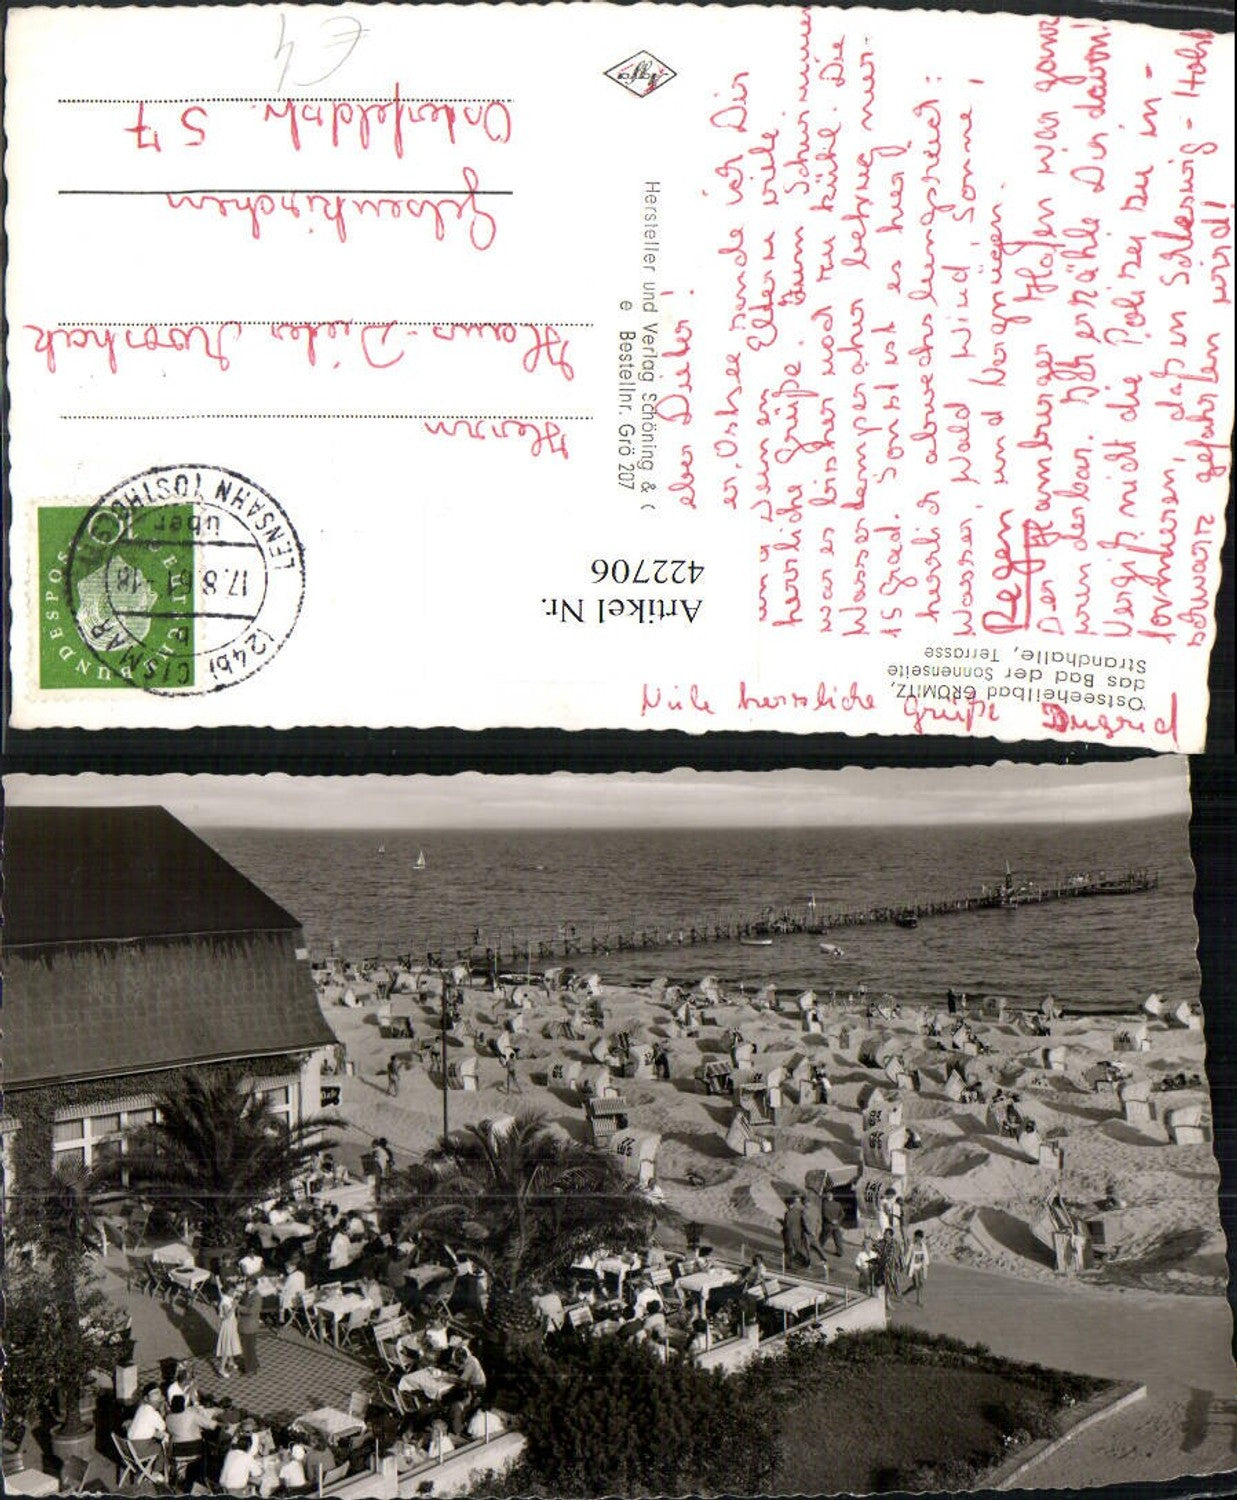 Ostseeheilbad GRÖMITZ,
das Bad der Sonnenseite
Strandhalle, Terrasse
eber Dieter!
er Ostsee sende ich Dir
und Deinen Eltern viele
herzliche Grüße. Zum Schwimmen
war es bisher noch zu kühl. Die
Wassertemperatur betrug nur
15 Grad. Sonst ist es hier
herrlich abwechslungsreich:
Wasser, Wald, Wind, Sonne,
Regen und Vergnügen.
Der Hamburger Hafen war ganz
wunderbar. Ich erzähle Dir davon!
Vergiß nicht die Polizei zu in-
formieren, daß in Schleswig-Holst
schwarz gefahren wird!
Viele herzliche Grüße Ingrid
Hersteller und Verlag Schöning &
Bestellnr. Grö 207
Agfa
Artikel Nr.
422706
BUNDESPOS
(24b) CISMAR
über
LENSAHN (OSTHOLST)
17.8.61-18
b
Herrn
Hans-Dieter
Gelsenkirchen
Osterfeldstr. 57
€4